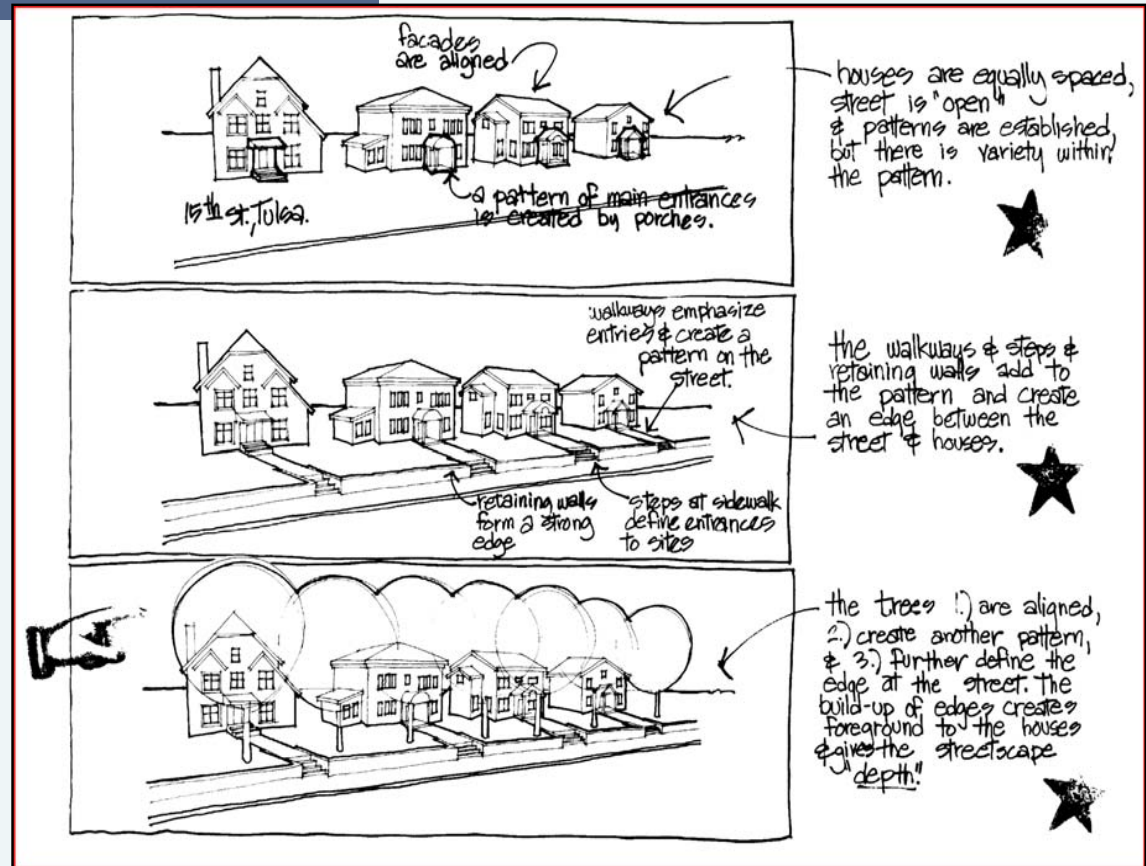 facades
are aligned
15th st., Tulsa.
a pattern of main entrances
is created by porches.
houses are equally spaced,
street is "open"
& patterns are established,
but there is variety within
the pattern.
walkways emphasize
entries & create a
pattern on the
street.
retaining walls
form a strong
edge
steps at sidewalk
define entrances
to sites
the walkways & steps &
retaining walls add to
the pattern and create
an edge between the
street & houses.
the trees 1.) are aligned,
2.) create another pattern,
& 3.) further define the
edge at the street. the
build-up of edges creates
foreground to the houses
& gives the streetscape
"depth."